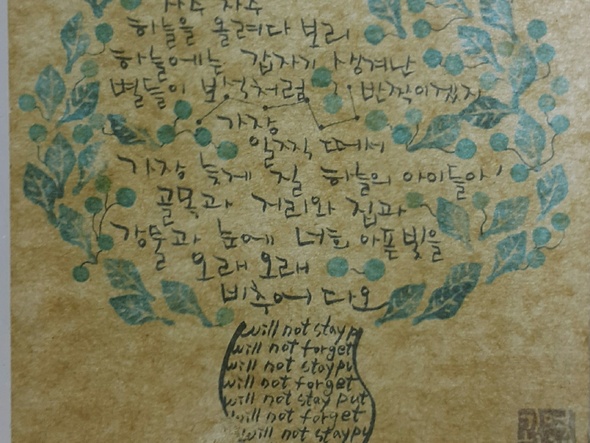 자주 자주
하늘을 올려다 보리
하늘에는 갑자기 생겨난
별들이 보석처럼 반짝이겠지
가장
일찍 떠서
가장 늦게 질 하늘의 아이들아!
골목과 거리와 집과
강물과 눈에 너희 아픈 빛을
오래 오래
비추어 다오
will not stayp
will not forget
will not staypu
will not forget
will not stay put
will not forget
will not staypu